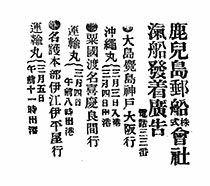 鹿兒島郵船株式會社
汽船發着廣告
電話三三番
●大島鹿島神戸大阪行
沖繩丸(三月三日入港 三月四日出港)
●粟國渡名喜慶良間行
運輸丸(三月四日 午前八時出港)
●名護本部伊江伊平屋行
運輸丸(三月五日 午前十一時出港)